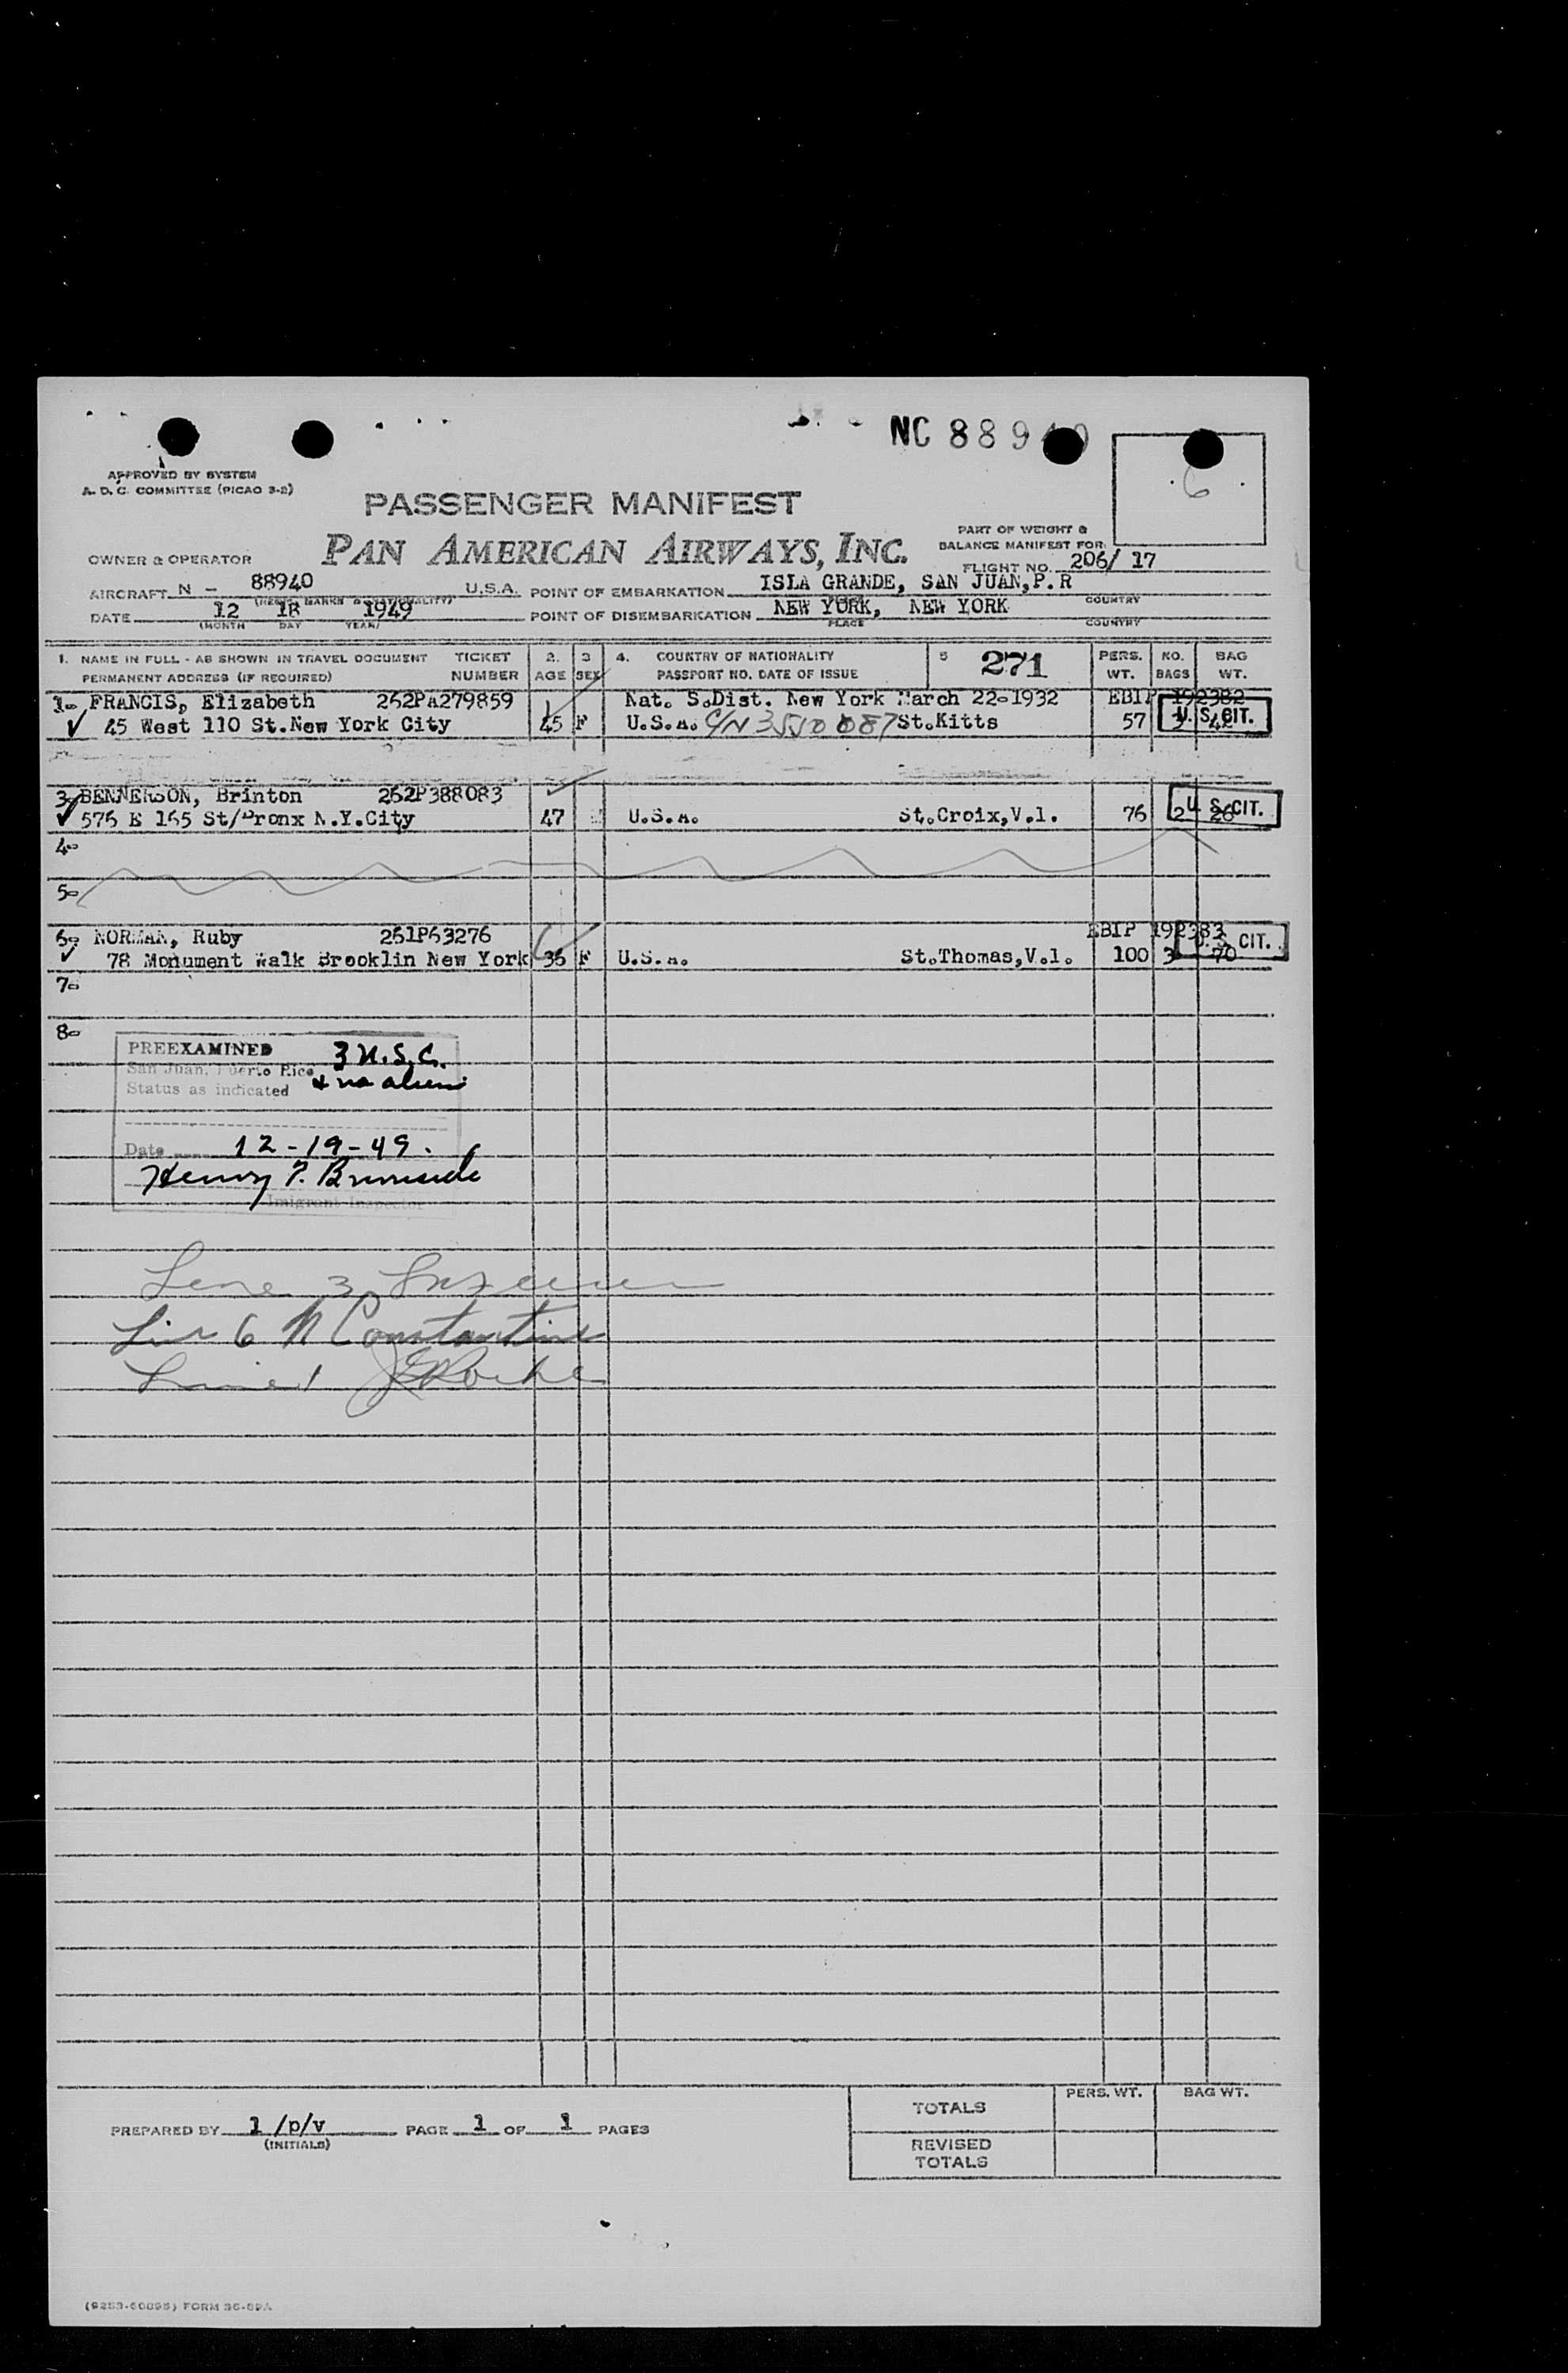 NC 88940
6
APPROVED BY SYSTEM
A. D. C. COMMITTEE (PICAO 3-2)
PASSENGER MANIFEST
PART OF WEIGHT &
BALANCE MANIFEST FOR:
OWNER & OPERATOR PAN AMERICAN AIRWAYS, INC.
FLIGHT NO. 206/ 17
AIRCRAFT N - 88940 U.S.A. POINT OF EMBARKATION ISLA GRANDE, SAN JUAN,P.R
DATE 12 18 1949 POINT OF DISEMBARKATION NEW YORK, NEW YORK
(MONTH DAY YEAR) PLACE COUNTRY
1. NAME IN FULL - AS SHOWN IN TRAVEL DOCUMENT TICKET 2. 3 4. COUNTRY OF NATIONALITY 5 271 PERS. NO. BAG
PERMANENT ADDRESS (IF REQUIRED) NUMBER AGE SEX PASSPORT NO. DATE OF ISSUE WT. BAGS WT.
1. FRANCIS, Elizabeth 262PA279859 Nat. S.Dist. New York March 22-1932 EBIP 192382
45 West 110 St.New York City 45 F U.S.A. C/N 3550087 St.Kitts 57 U. S. CIT.
3 BENNERSON, Brinton 262P388083
576 E 165 St/Bronx N.Y.City 47 U.S.A. St.Croix,V.1. 76 2 26 U. S. CIT.
4-
5-
6- NORMAN, Ruby 261P63276 EBIP 192383
78 Monument Walk Brooklin New York 36 F U.S.A. St.Thomas,V.1. 100 3 70 U. S. CIT.
7-
8-
PREEXAMINED 3 U.S.C.
San Juan, Puerto Rico & no aliens
Status as indicated
Date 12-19-49.
Henry P.
Imigrant Inspector
Line 3
Line 6 N Constantine
Line 1
PREPARED BY 1 /p/v PAGE 1 OF 1 PAGES
(INITIALS)
PERS. WT. BAG WT.
TOTALS
REVISED
TOTALS